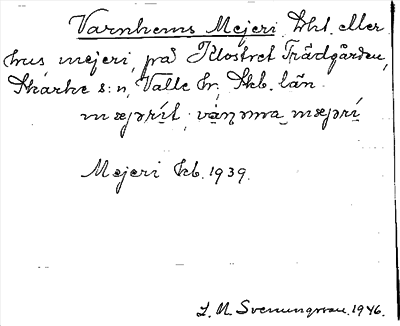 Varnhems Mejeri, tht. eller
hus mejeri, på Klostret Trädgården,
Skärke s:n, Valle hr, Skb. län.
Mejeri kb. 1939.
L. M. Svenungsson. 1946.